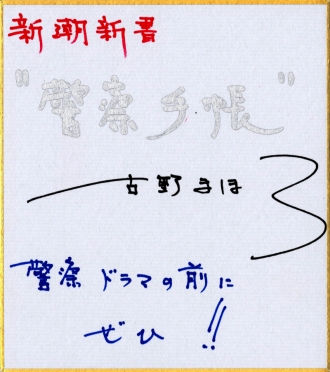 新潮新書
"警察手帳"
古野まほろ
警察ドラマの前に
ぜひ!!